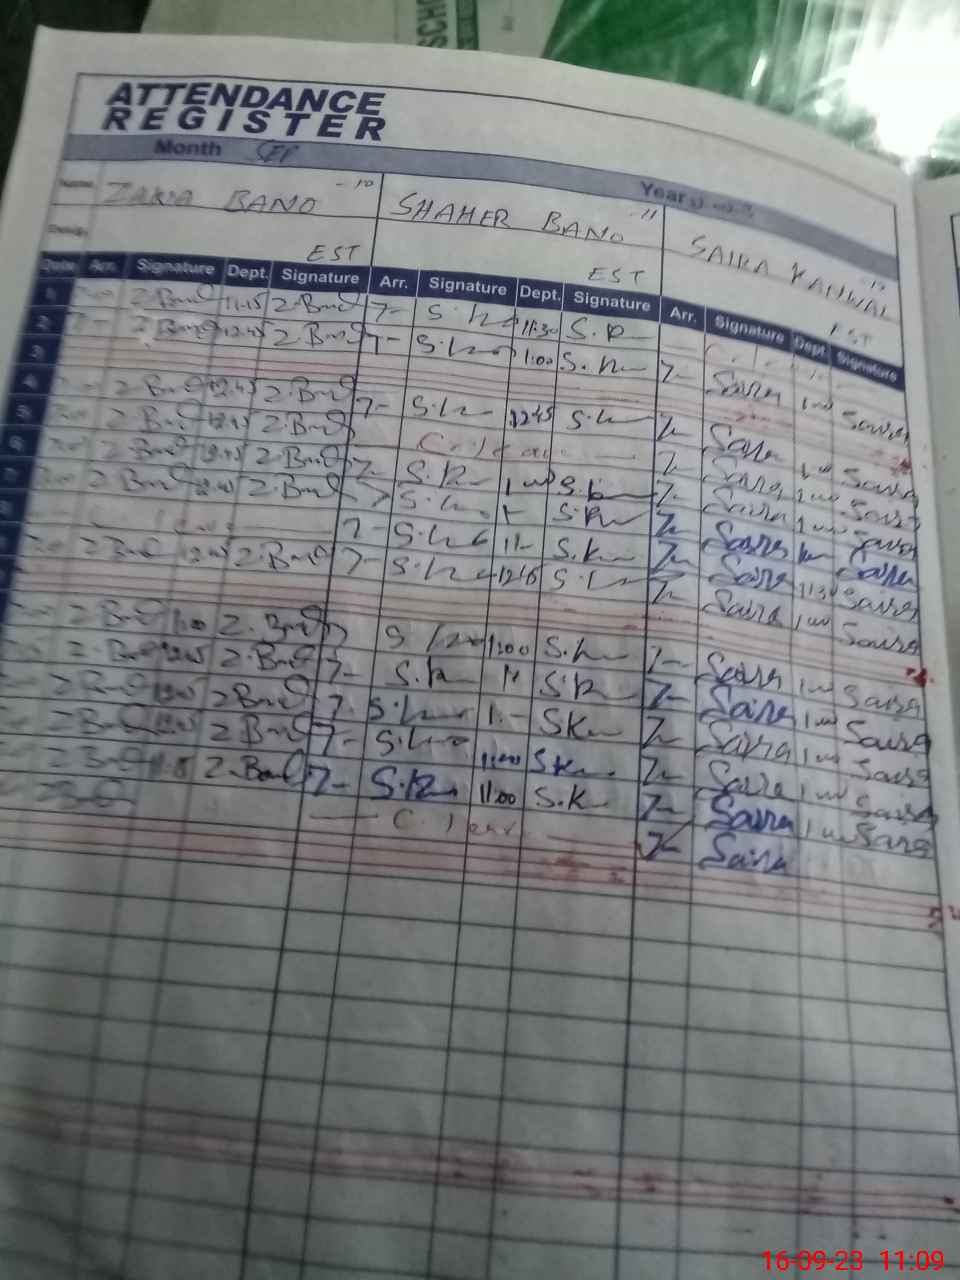 SCHO
ATTENDANCE
REGISTER
Month SEP Year
Name ZAKIA BANO -10 SHAHER BANO -11 SAIRA KANWAL
EST EST EST
Date Arr. Signature Dept. Signature Arr. Signature Dept. Signature Arr. Signature Dept. Signature
1 Z.Bano 11:15 Z.Bano 7- S.K 11:30 S.K
2 Z.Bano 12:45 Z.Bano 7- S.K 1:00 S.K 7- Saira 1:00 Saira
3
4 Z.Bano 12:45 Z.Bano 7- S.K 12:45 S.K 7- Saira 1:00 Saira
5 Z.Bano 12:45 Z.Bano C. leave 7- Saira 1:00 Saira
6 Z.Bano 12:45 Z.Bano 7- S.K 1:00 S.K 7- Saira 1:00 Saira
7 Z.Bano 12:40 Z.Bano 7- S.K 1- S.K 7- Saira Saira
8 Leave 7- S.K 11- S.K 7- Saira 11:30 Saira
Z.Bano 12:45 Z.Bano 7- S.K 12:45 S.K 7- Saira 1:00 Saira
Z.Bano 1:00 Z.Bano 7- S.K 1:00 S.K 7- Saira 1:00 Saira
Z.Bano 12:45 Z.Bano 7- S.K S.K 7- Saira 1:00 Saira
Z.Bano Z.Bano 7- S.K 1:- S.K 7- Saira 1:00 Saira
Z.Bano 12:45 Z.Bano 7- S.K 11:00 S.K 7- Saira 1:00 Saira
Z.Bano Z.Bano 7- S.K 11:00 S.K 7- Saira 1:00 Saira
Z.Bano C. leave 7- Saira
16-09-23 11:09